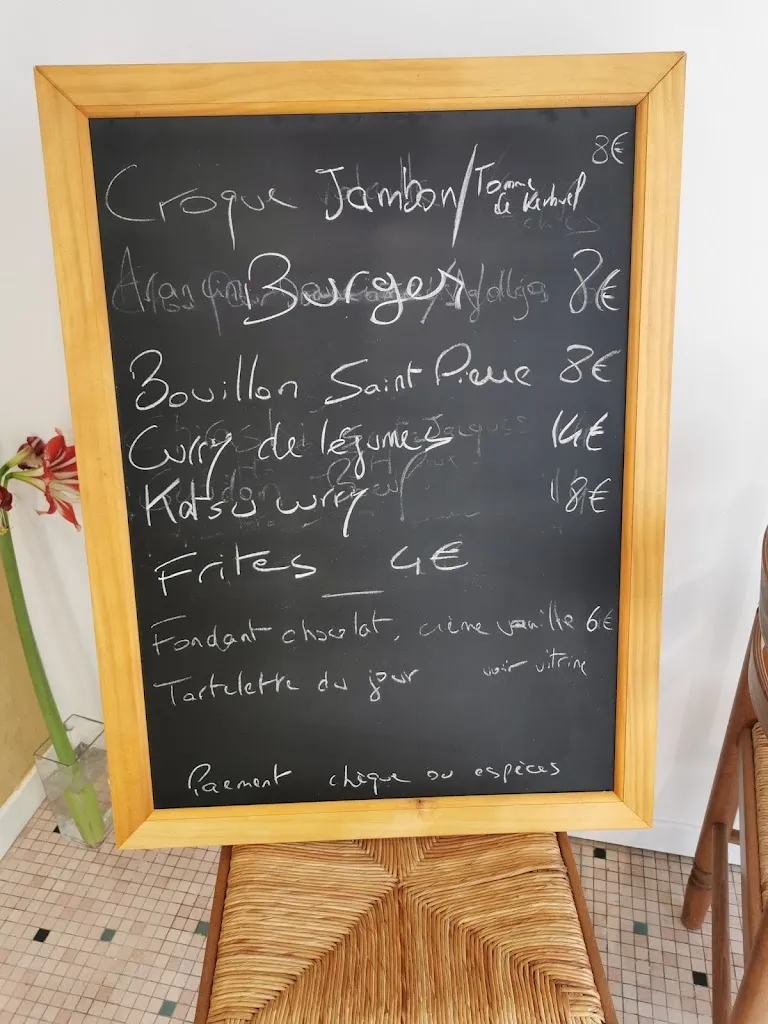 8€
Croque Jambon/Tomme
de
Burger 8€
Bouillon Saint Pierre 8€
Curry de légumes 14€
Katsu curry 18€
Frites 4€
Fondant chocolat, crème vanille 6€
Tartelette du jour voir vitrine
Paiement chèque ou espèces